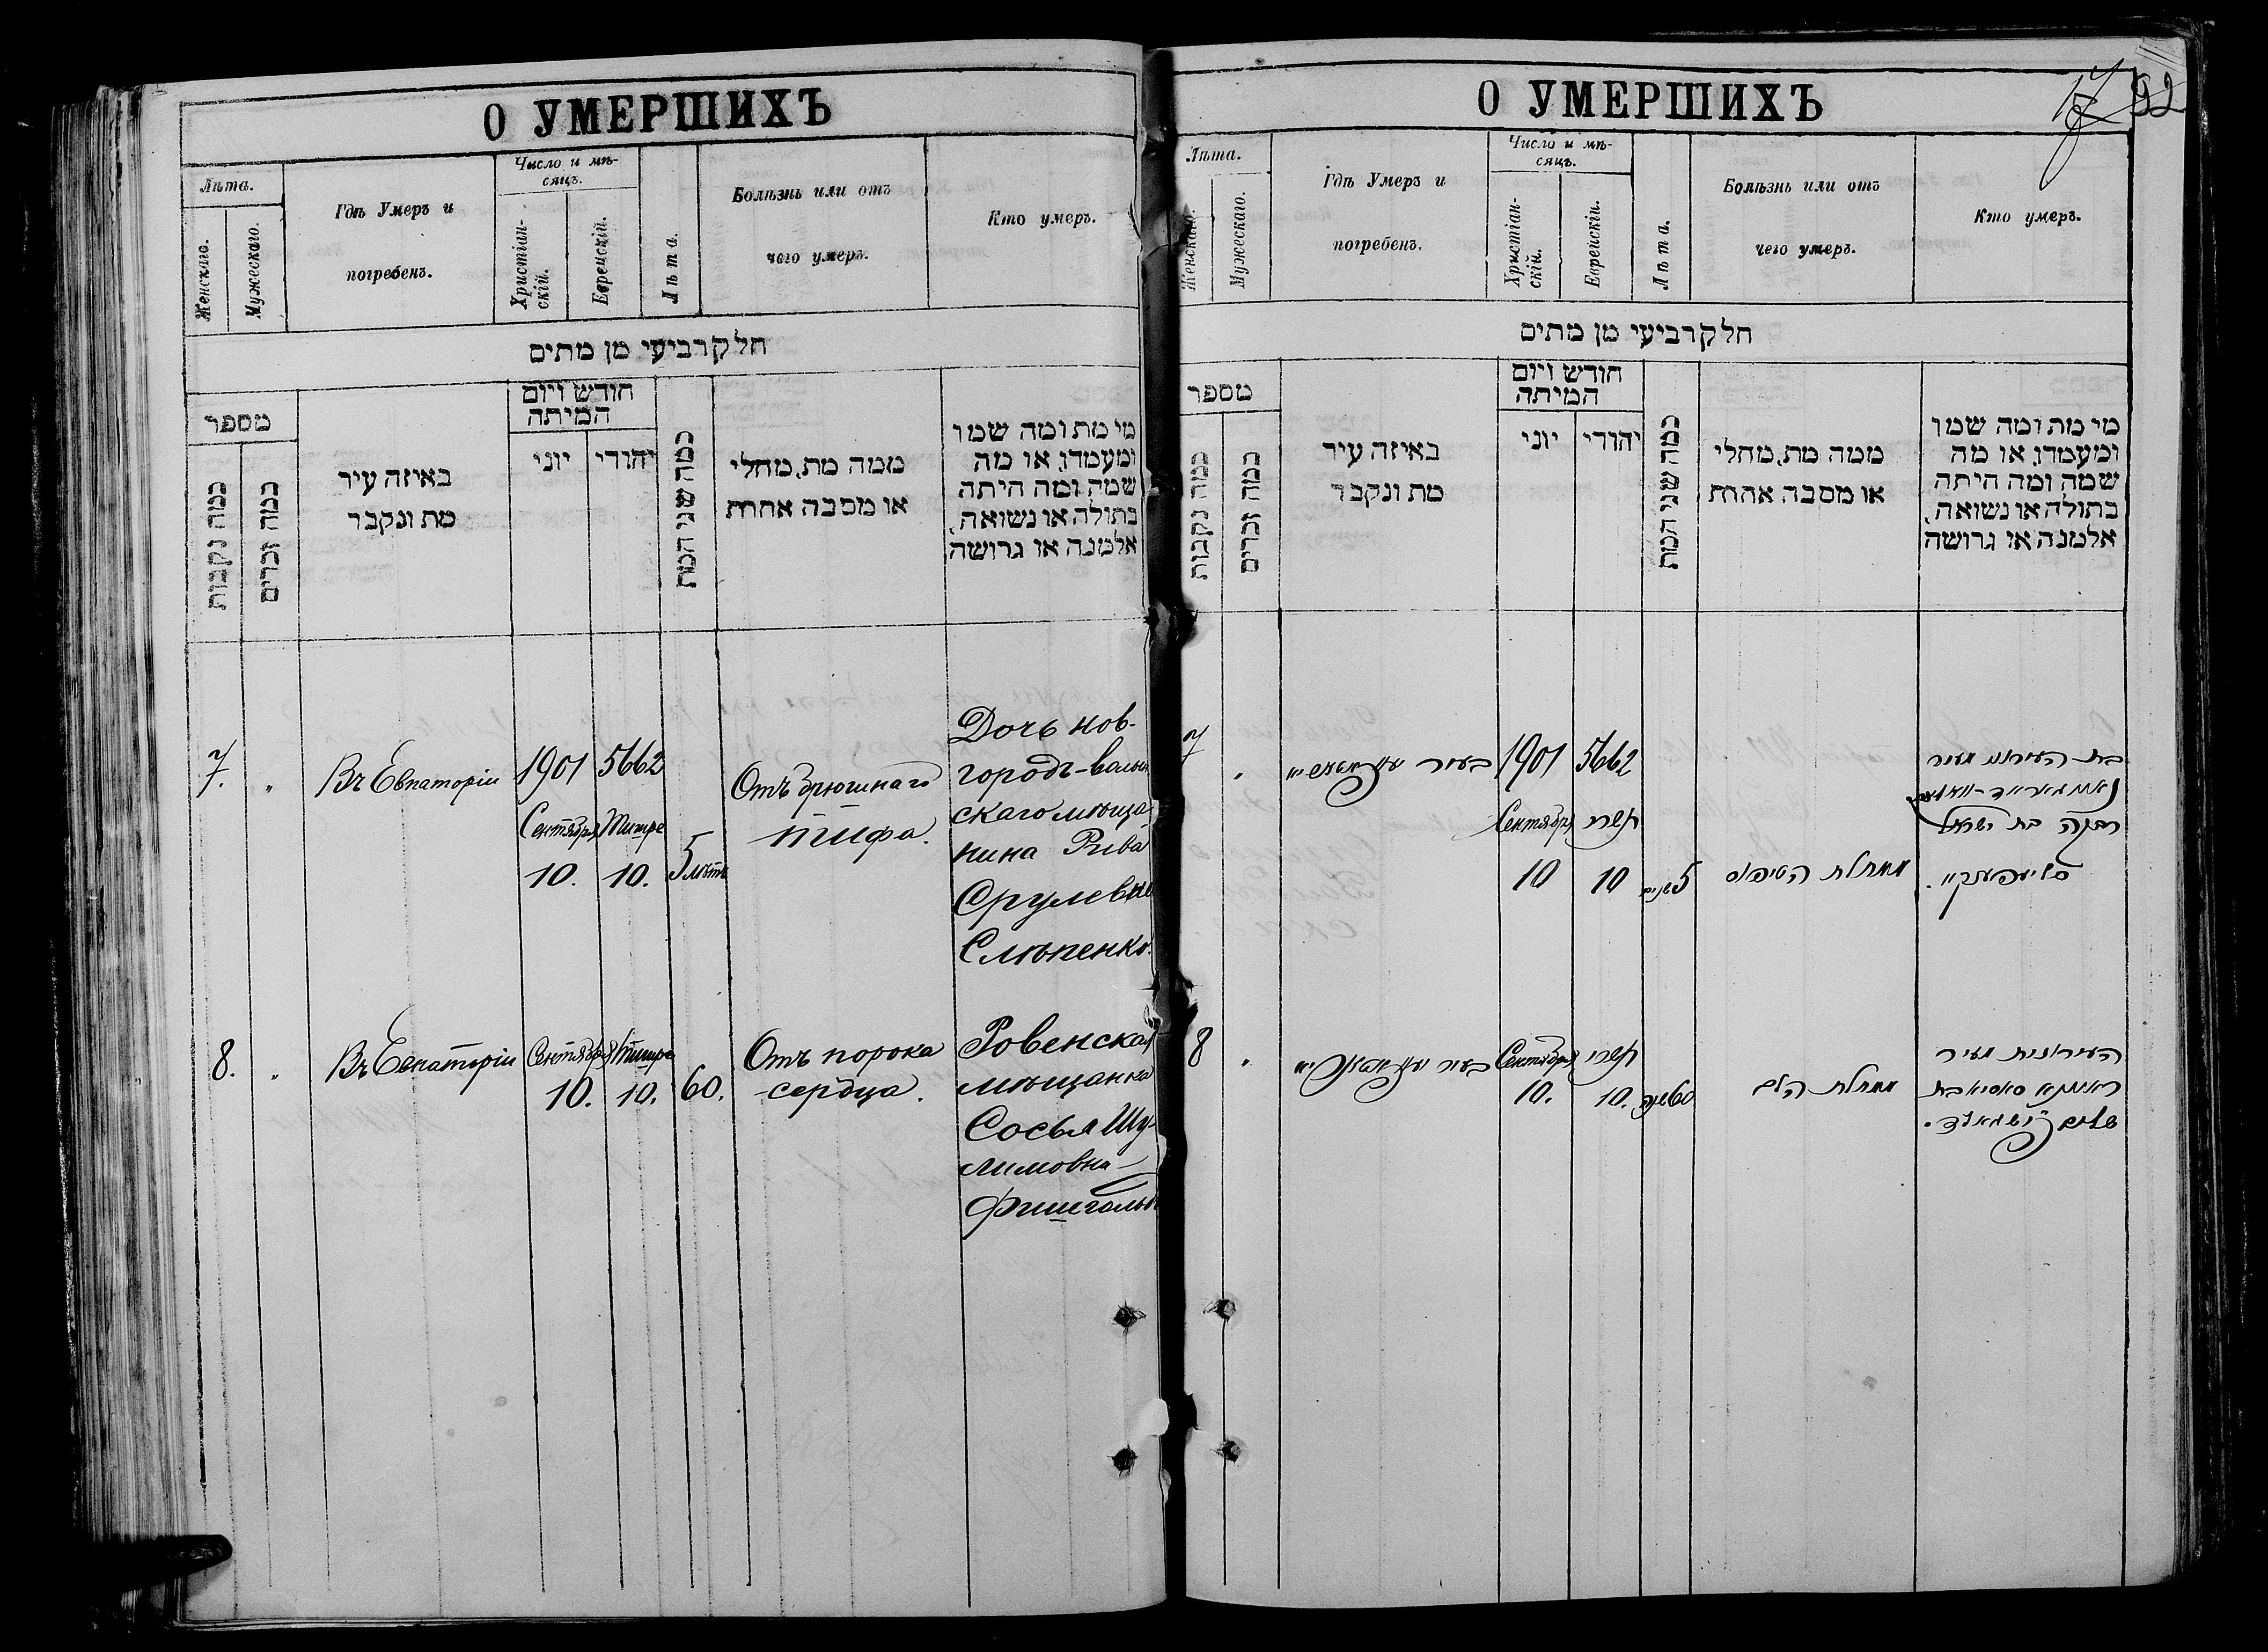 О УМЕРШИХЪ
Лѣта.
Женскаго.
Мужескаго.
Гдѣ Умеръ и
погребенъ.
Число и мѣ-
сяцъ.
Христіан-
скій.
Еврейскій.
Лѣта.
Болѣзнь или отъ
чего умеръ.
Кто умеръ.
חלק רביעי מן מתים
מספר
כמה נקבות
כמה זכרים
באיזה עיר
מת ונקבר
חודש ויום
המיתה
יוני
יהודי
כמה שני המת
ממה מת, מחלי
או מסבה אחרת
מי מת ומה שמו
ומעמדו, או מה
שמה ומה היתה
בתולה או נשואה,
אלמנה או גרושה
7. "
Въ Евпаторіи
1901 5662
Сентября Тишре
10. 10.
5 лѣтъ
Отъ брюшнаго
тифа.
Дочь нов-
городъ-волын
скаго мѣща
нина Рива
Срулевна
Слѣпенко.
8. "
Въ Евпаторіи
Сентября Тишре
10. 10.
60.
Отъ порока
сердца.
Ровенская
мѣщанка
Сосья Шу-
лимовна
Фишгольдъ
О УМЕРШИХЪ
92
Лѣта.
Женскаго.
Мужескаго.
Гдѣ Умеръ и
погребенъ.
Число и мѣ-
сяцъ.
Христіан-
скій.
Еврейскій.
Лѣта.
Болѣзнь или отъ
чего умеръ.
Кто умеръ.
חלק רביעי מן מתים
מספר
כמה נקבות
כמה זכרים
באיזה עיר
מת ונקבר
חודש ויום
המיתה
יוני
יהודי
כמה שני המת
ממה מת, מחלי
או מסבה אחרת
מי מת ומה שמו
ומעמדו, או מה
שמה ומה היתה
בתולה או נשואה,
אלמנה או גרושה
7 "
בעיר
1901 5662
Сентября תשרי
10 10
5 שנים
מחלת הטיפוס
בת העירוני מעיר
רבקה בת ישראל
סליעפענקיו.
8 "
בעיר
Сентября תשרי
10. 10.
60 שנה
מחלת הלב
העירונית מעיר
ראוונא סאסיא בת
שלום פישגאלד.